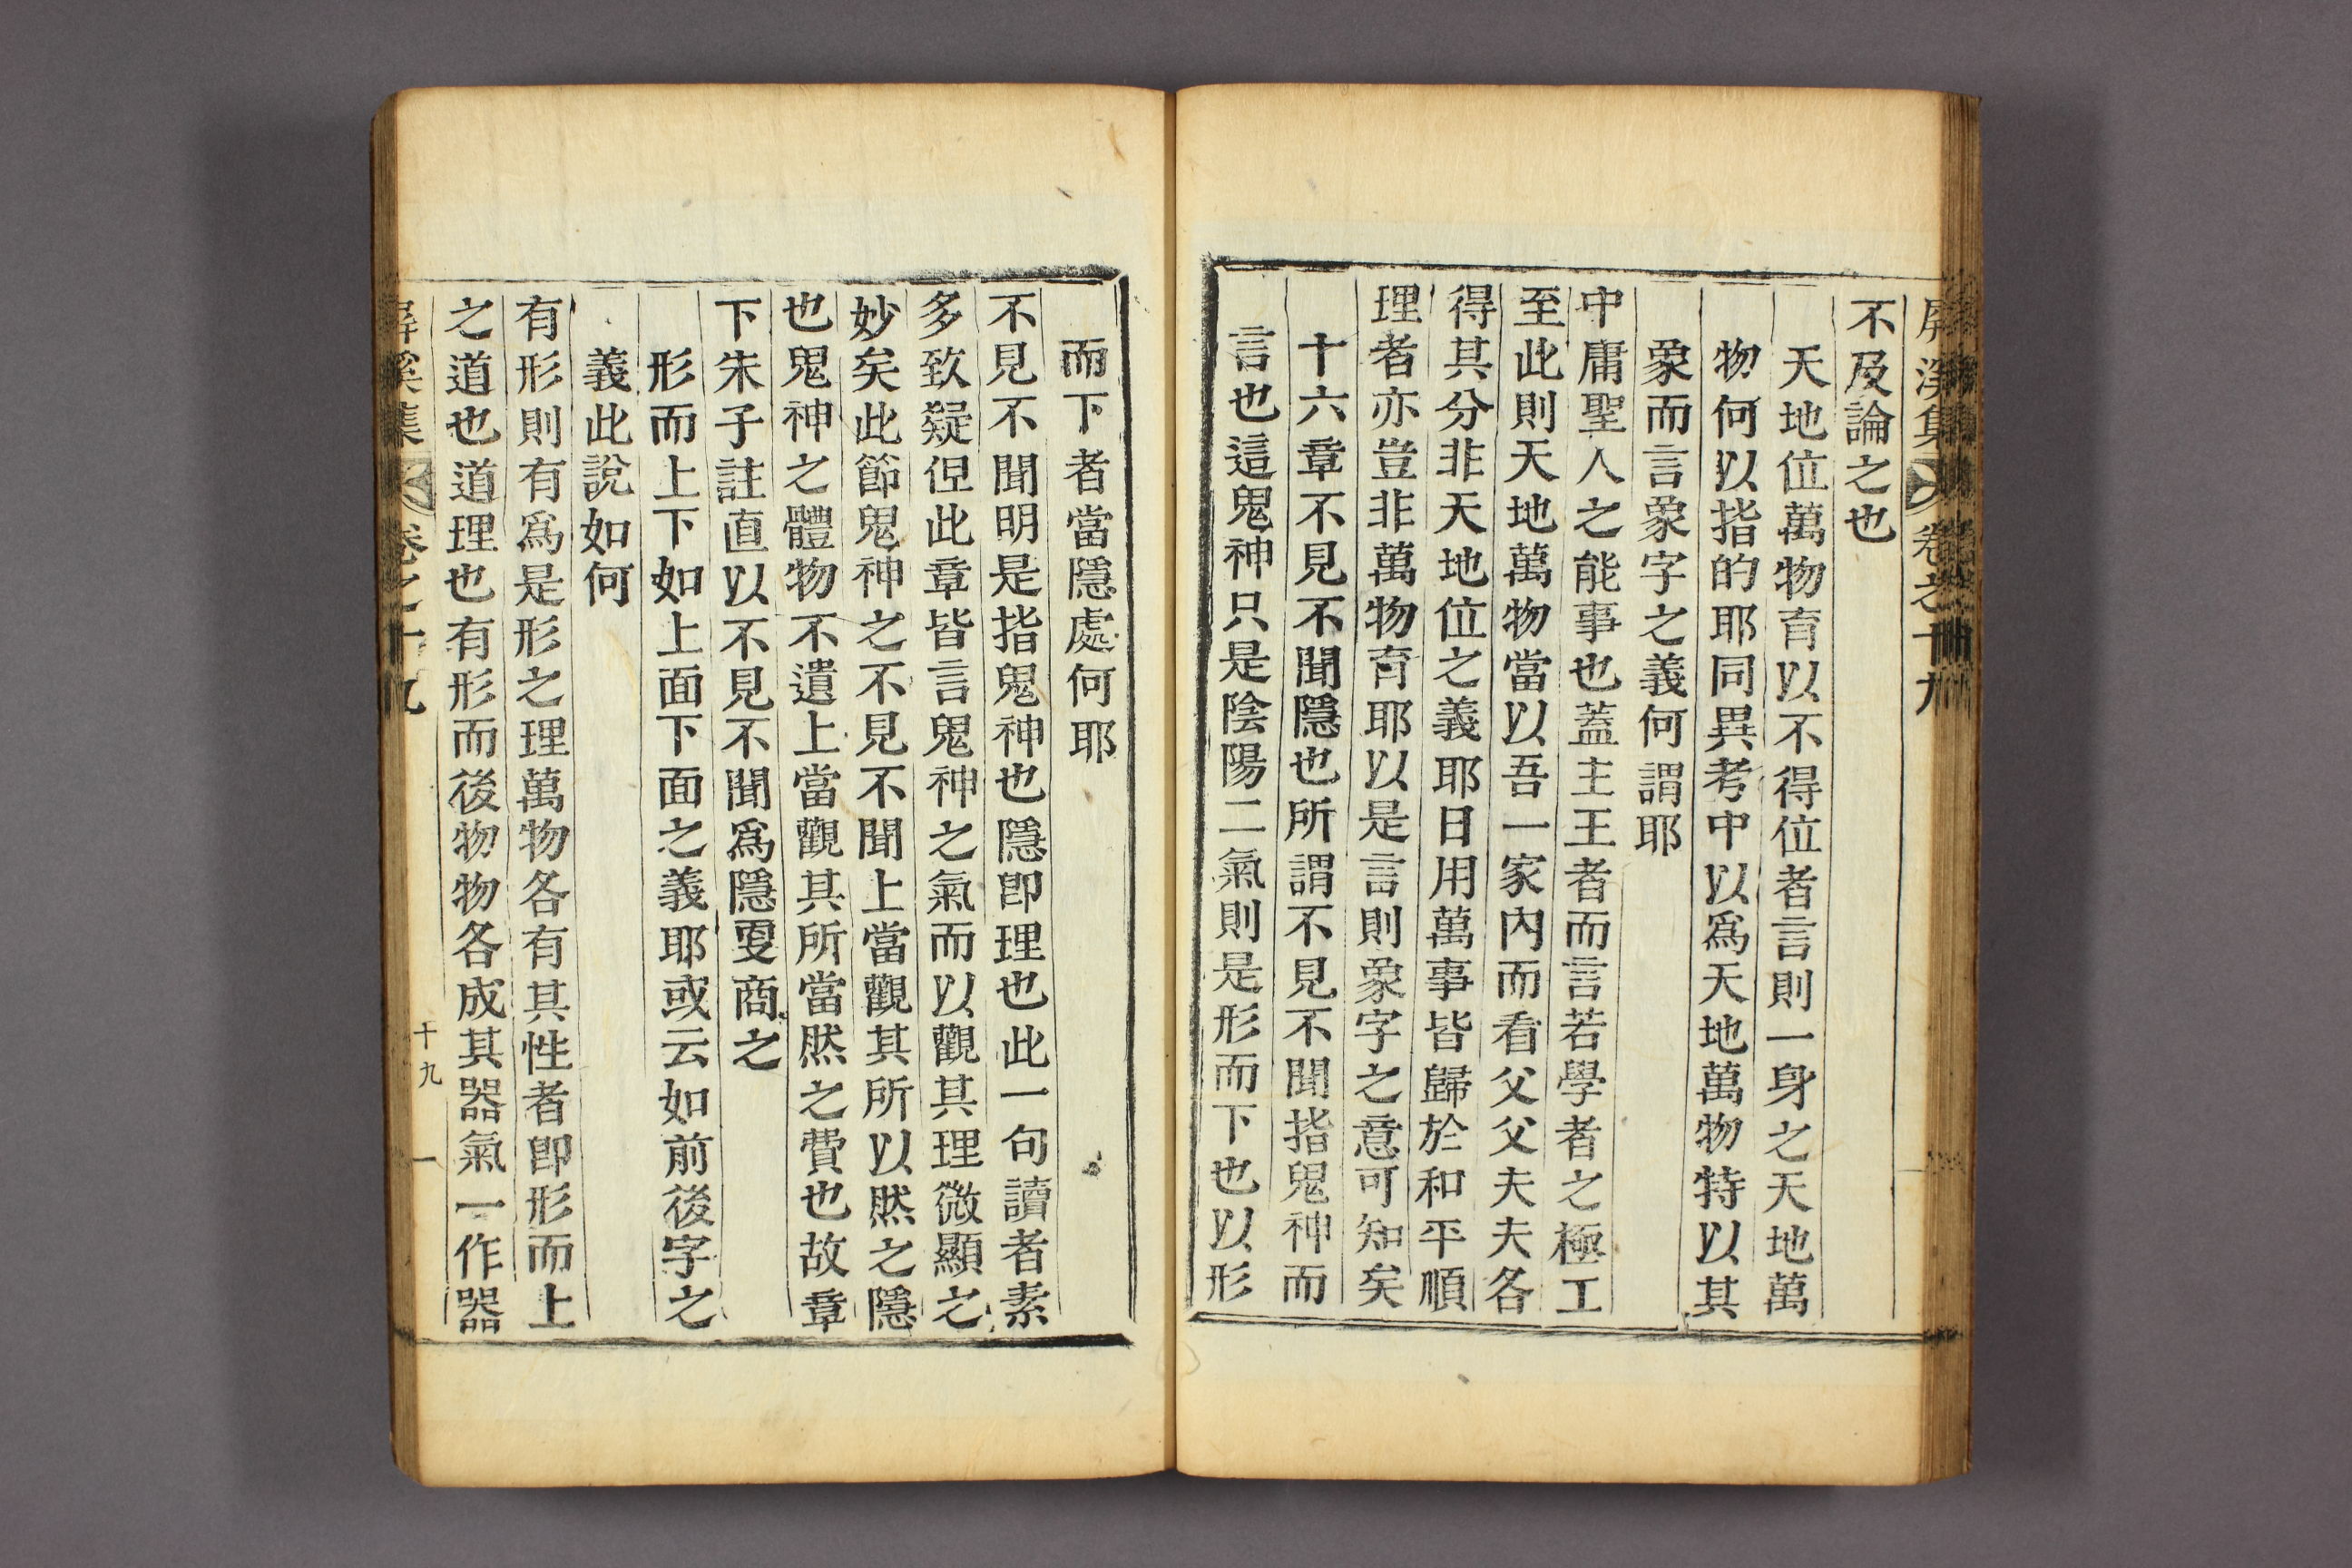 屏溪集 卷之十九
不及論之也
天地位萬物育以不得位者言則一身之天地萬
物何以指的耶同異考中以爲天地萬物特以其
象而言象字之義何謂耶
中庸聖人之能事也蓋主王者而言若學者之極工
至此則天地萬物當以吾一家內而看父父夫夫各
得其分非天地位之義耶日用萬事皆歸於和平順
理者亦豈非萬物育耶以是言則象字之意可知矣
十六章不見不聞隱也所謂不見不聞指鬼神而
言也這鬼神只是陰陽二氣則是形而下也以形
而下者當隱處何耶
不見不聞明是指鬼神也隱卽理也此一句讀者素
多致疑但此章皆言鬼神之氣而以觀其理微顯之
妙矣此節鬼神之不見不聞上當觀其所以然之隱
也鬼神之體物不遺上當觀其所當然之費也故章
下朱子註直以不見不聞爲隱更商之
形而上下如上面下面之義耶或云如前後字之
義此說如何
有形則有爲是形之理萬物各有其性者卽形而上
之道也道理也有形而後物物各成其器氣一作器
屏溪集 卷之十九
十九 一